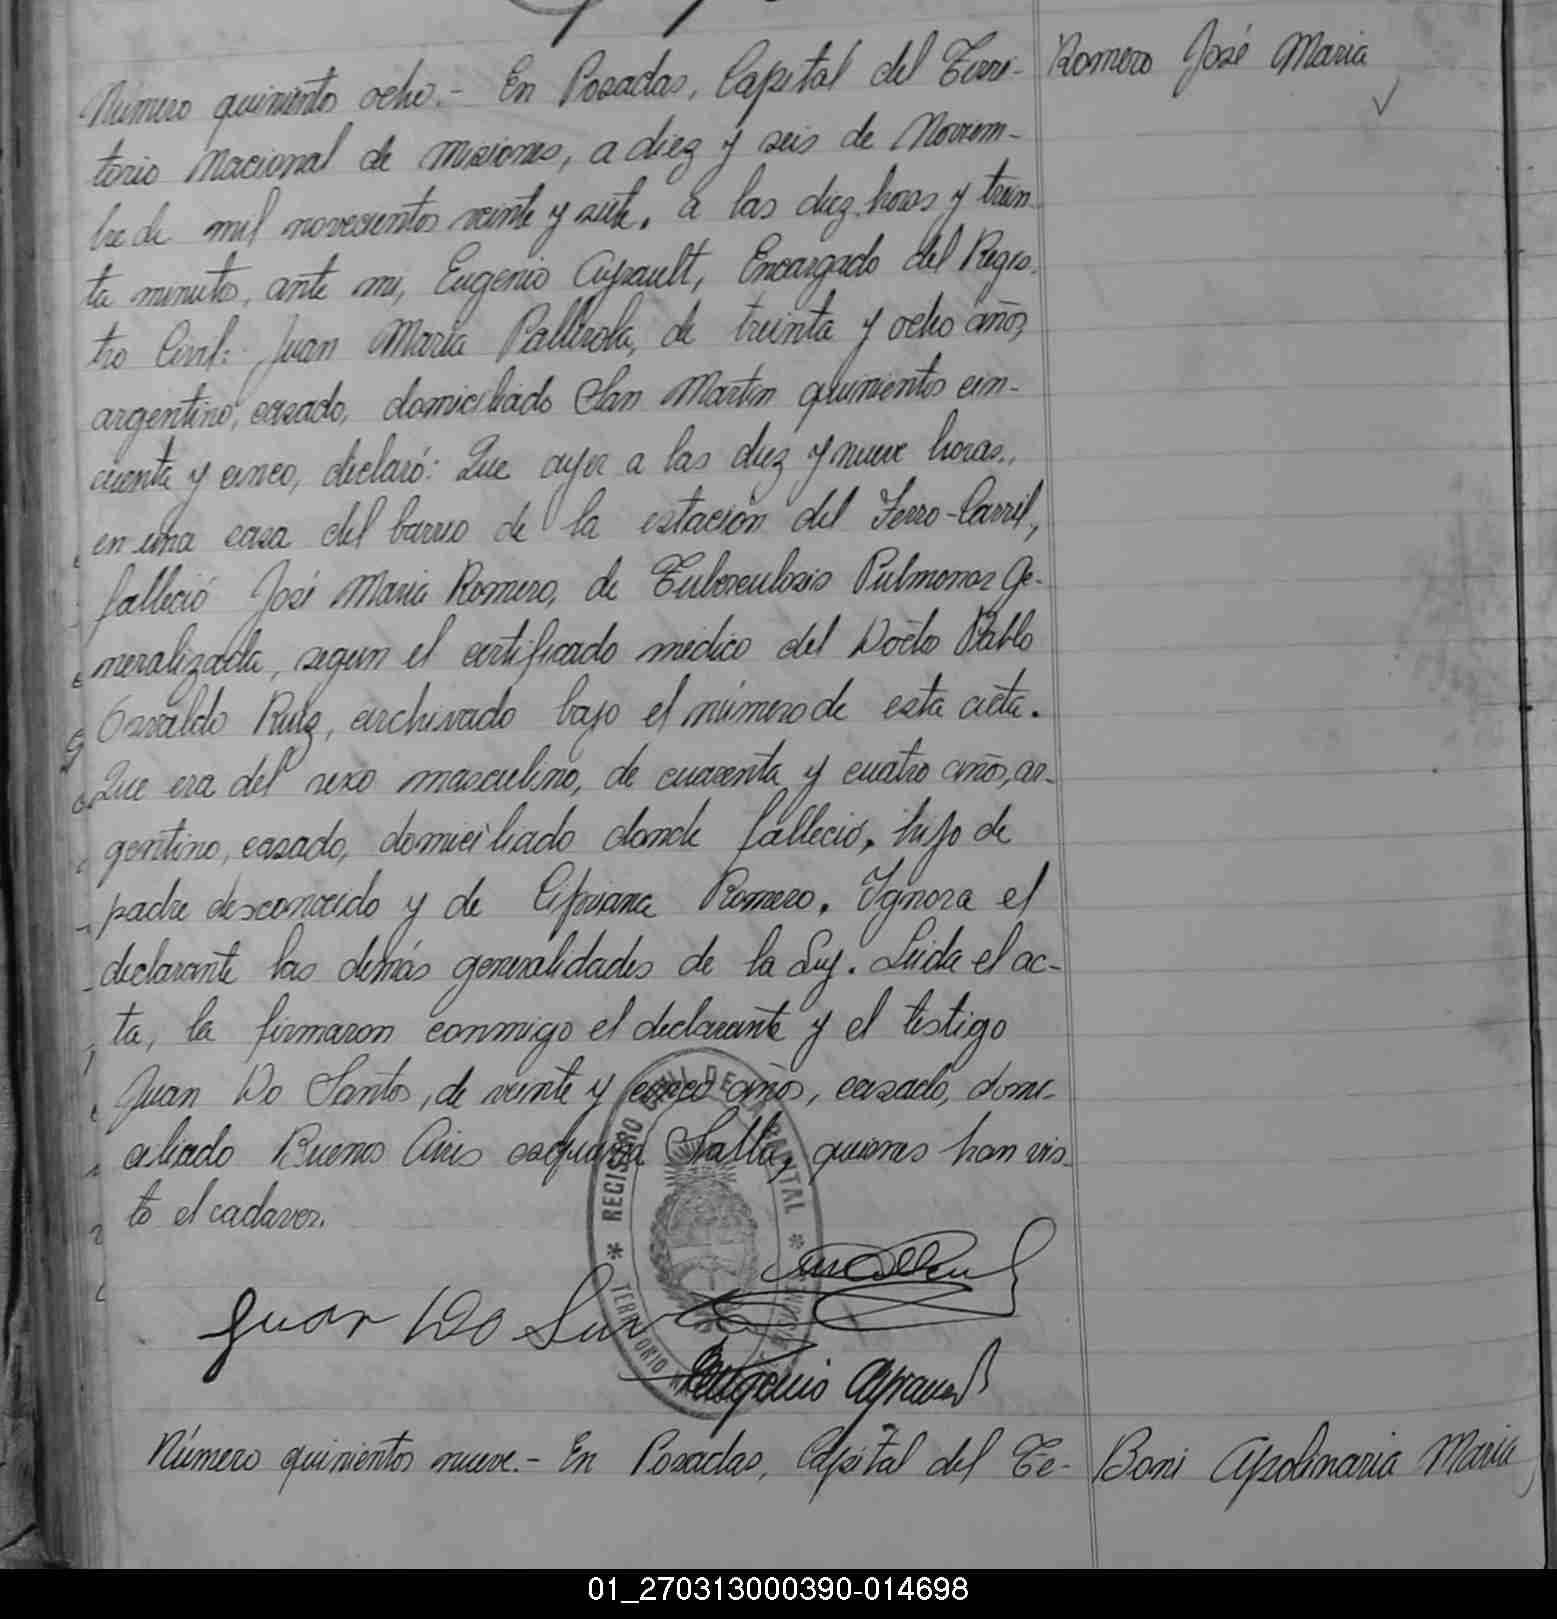 Número quiniento ocho.- En Posadas, Capital del Terri-
Romero José Maria
torio Nacional de Misiones, a diez y seis de Noviem-
bre de mil novecientos veinte y siete, a las diez horas y trein-
ta minutos, ante mi, Eugenio Ayrault, Encargado del Regis-
tro Civil: Juan María Pallerola, de treinta y ocho años,
argentino, casado, domiciliado San Martin quinientos cin-
cuenta y cinco, declaró: Que ayer a las diez y nueve horas,
en una casa del barrio de la estación del Ferro-Carril,
falleció José Maria Romero, de Tuberculosis Pulmonar Ge-
neralizada, segun el certificado médico del Docto Pablo
Osvaldo Ruiz, archivado bajo el número de esta acta.
Que era del sexo masculino, de cuarenta y cuatro años, ar-
gentino, casado, domiciliado donde falleció, hijo de
padre desconocido y de Cipriana Romero. Ignora el
declarante las demás generalidades de la Ley. Leida el ac-
ta, la firmaron conmigo el declarante y el testigo
Juan Do Santos, de veinte y cinco años, casado, domi-
ciliado Buenos Aires esquina Salta, quienes han vis-
to el cadaver.
REGISTRO CIVIL DE LA CAPITAL
TERRITORIO
Juan Do
Eugenio Ayrault
Número quinientos nueve.- En Posadas, Capital del Te-
Boni Apolinaria Maria
01_270313000390-014698